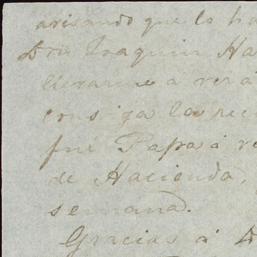 avisando que lo ha
Dn. Joaquin Ha
llevarme á ver á
consiga la rec
fué Papa á v
de Hacienda,
semana.
Gracias á D